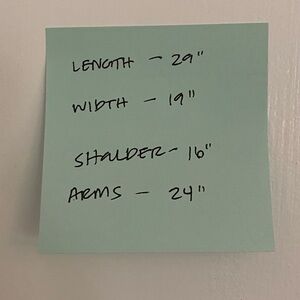 LENGTH - 29"
WIDTH - 19"
SHOLDER - 16"
ARMS - 24"